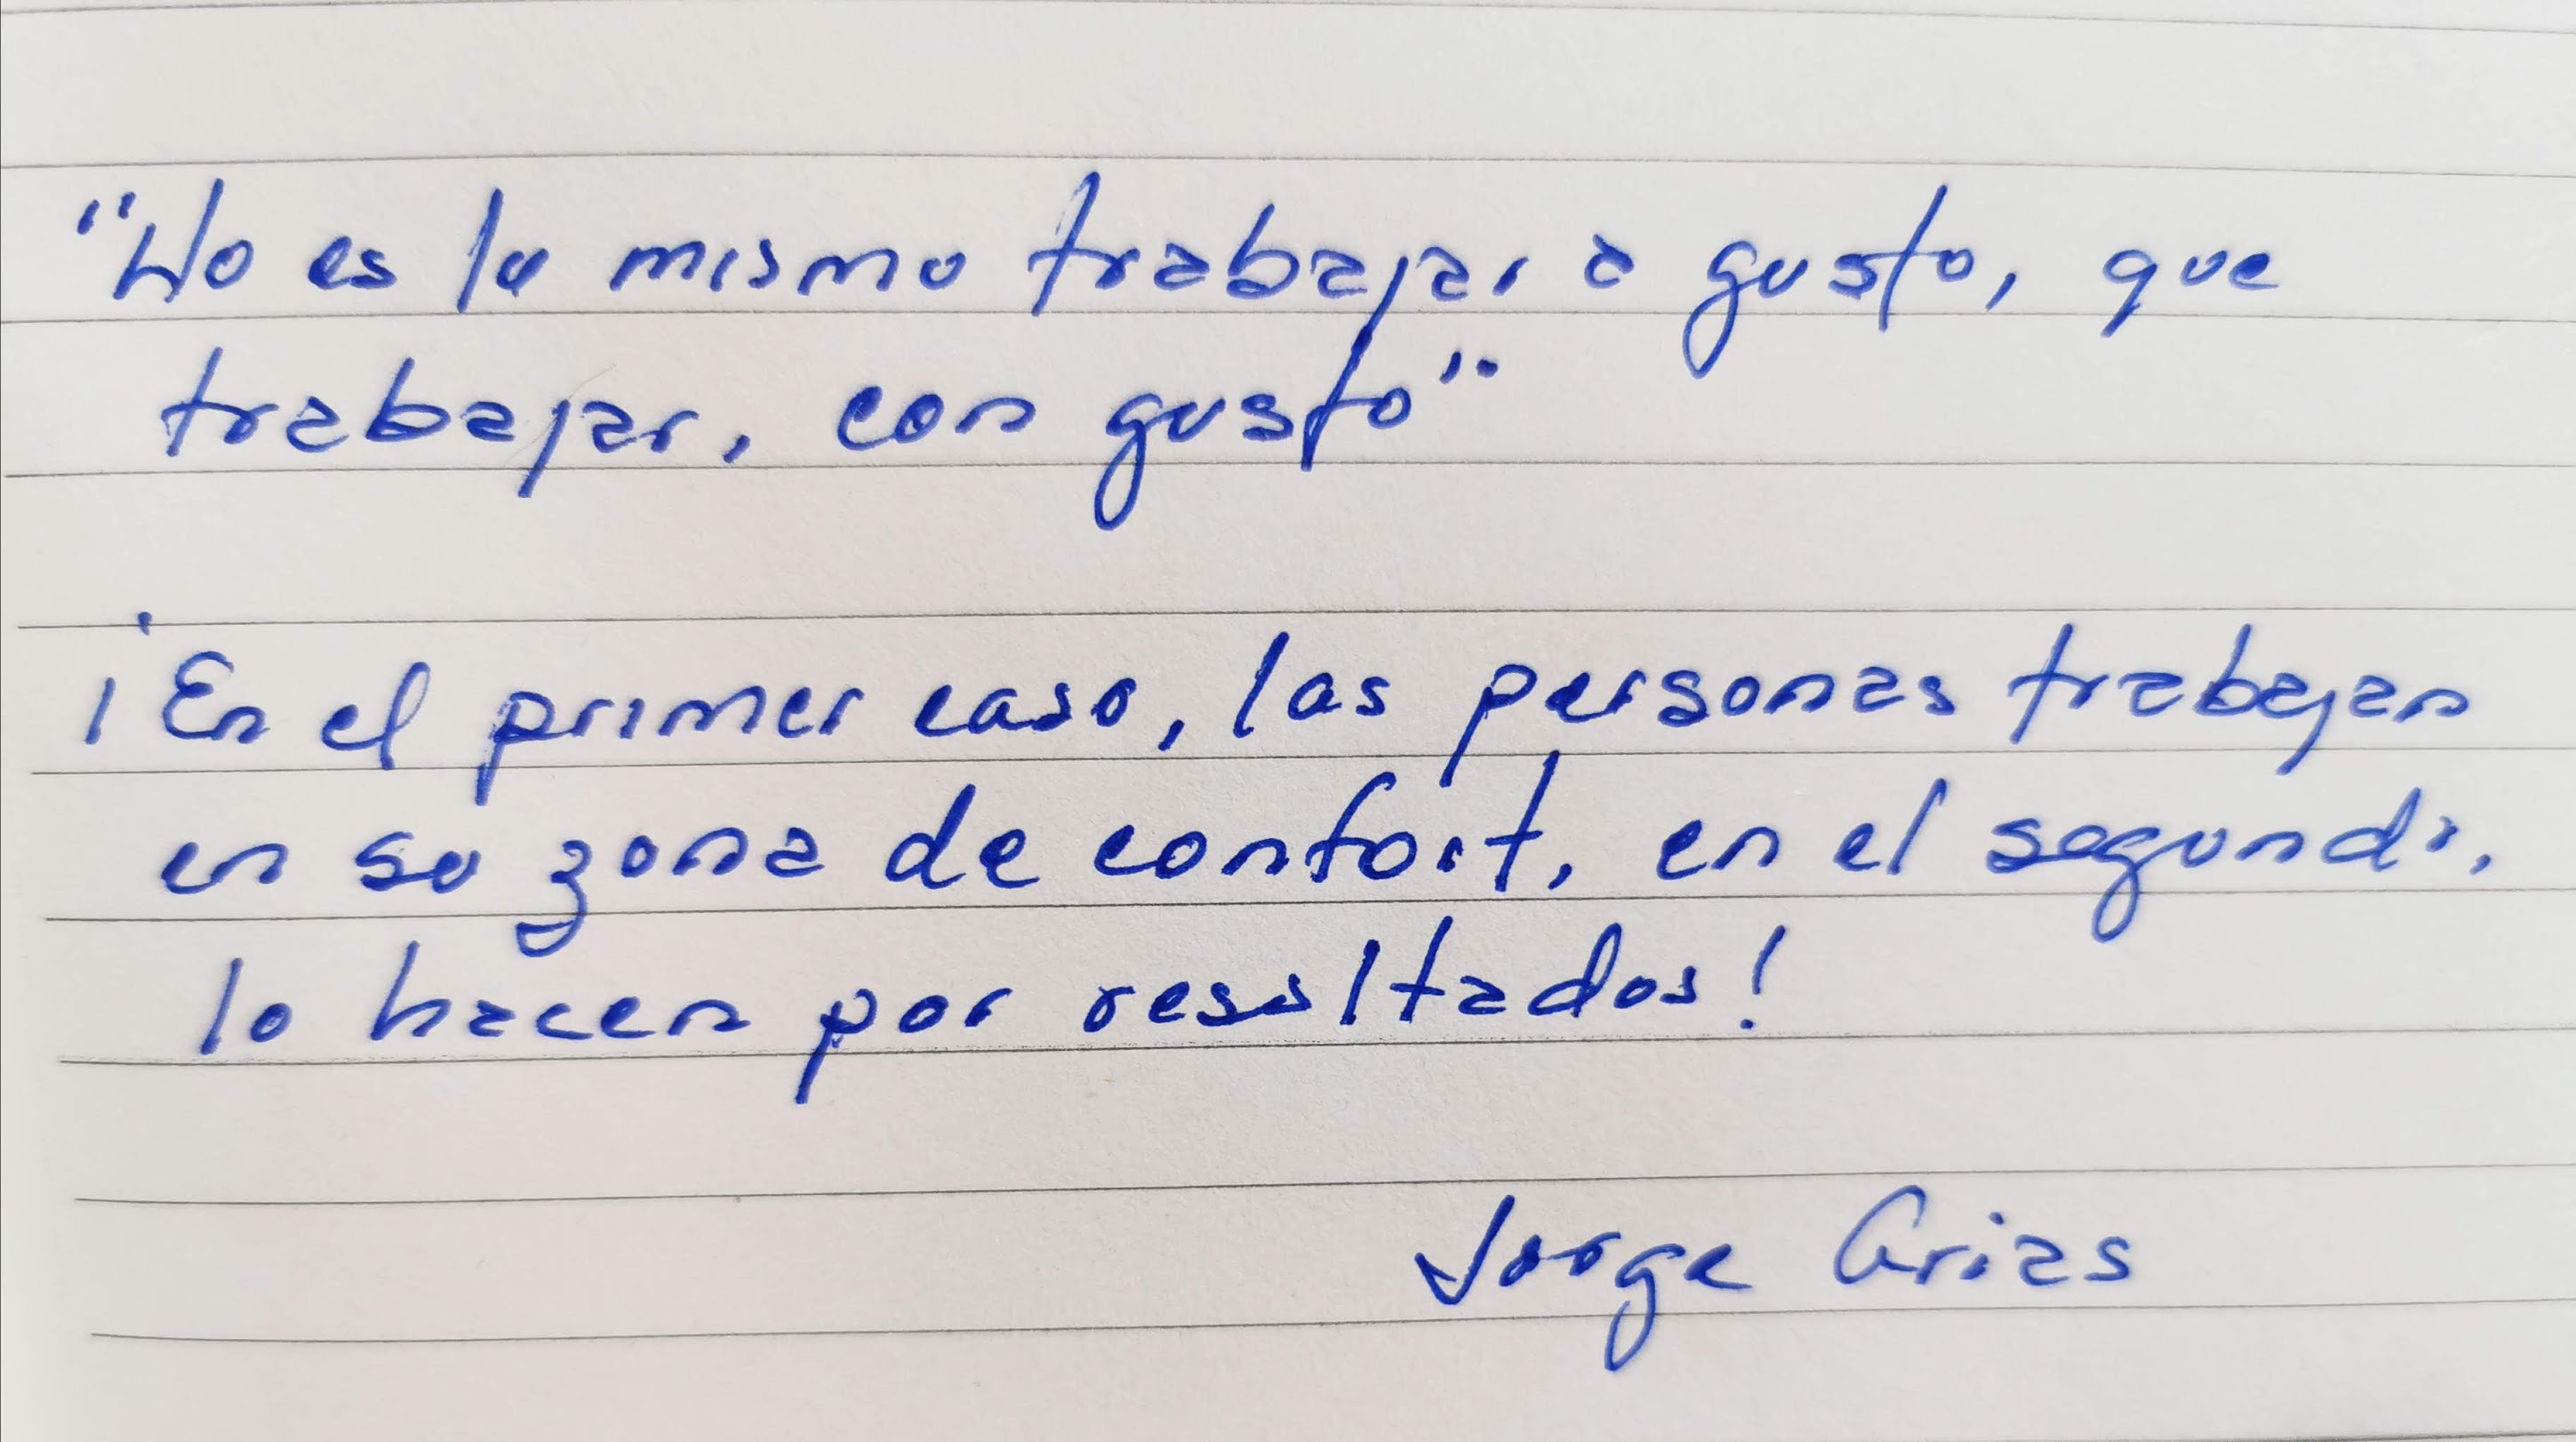 "No es lo mismo trabajar a gusto, que
trabajar, con gusto"
¡En el primer caso, las personas trabajan
en su zona de confort, en el segundo,
lo hacen por resultados!
Jorge Arias